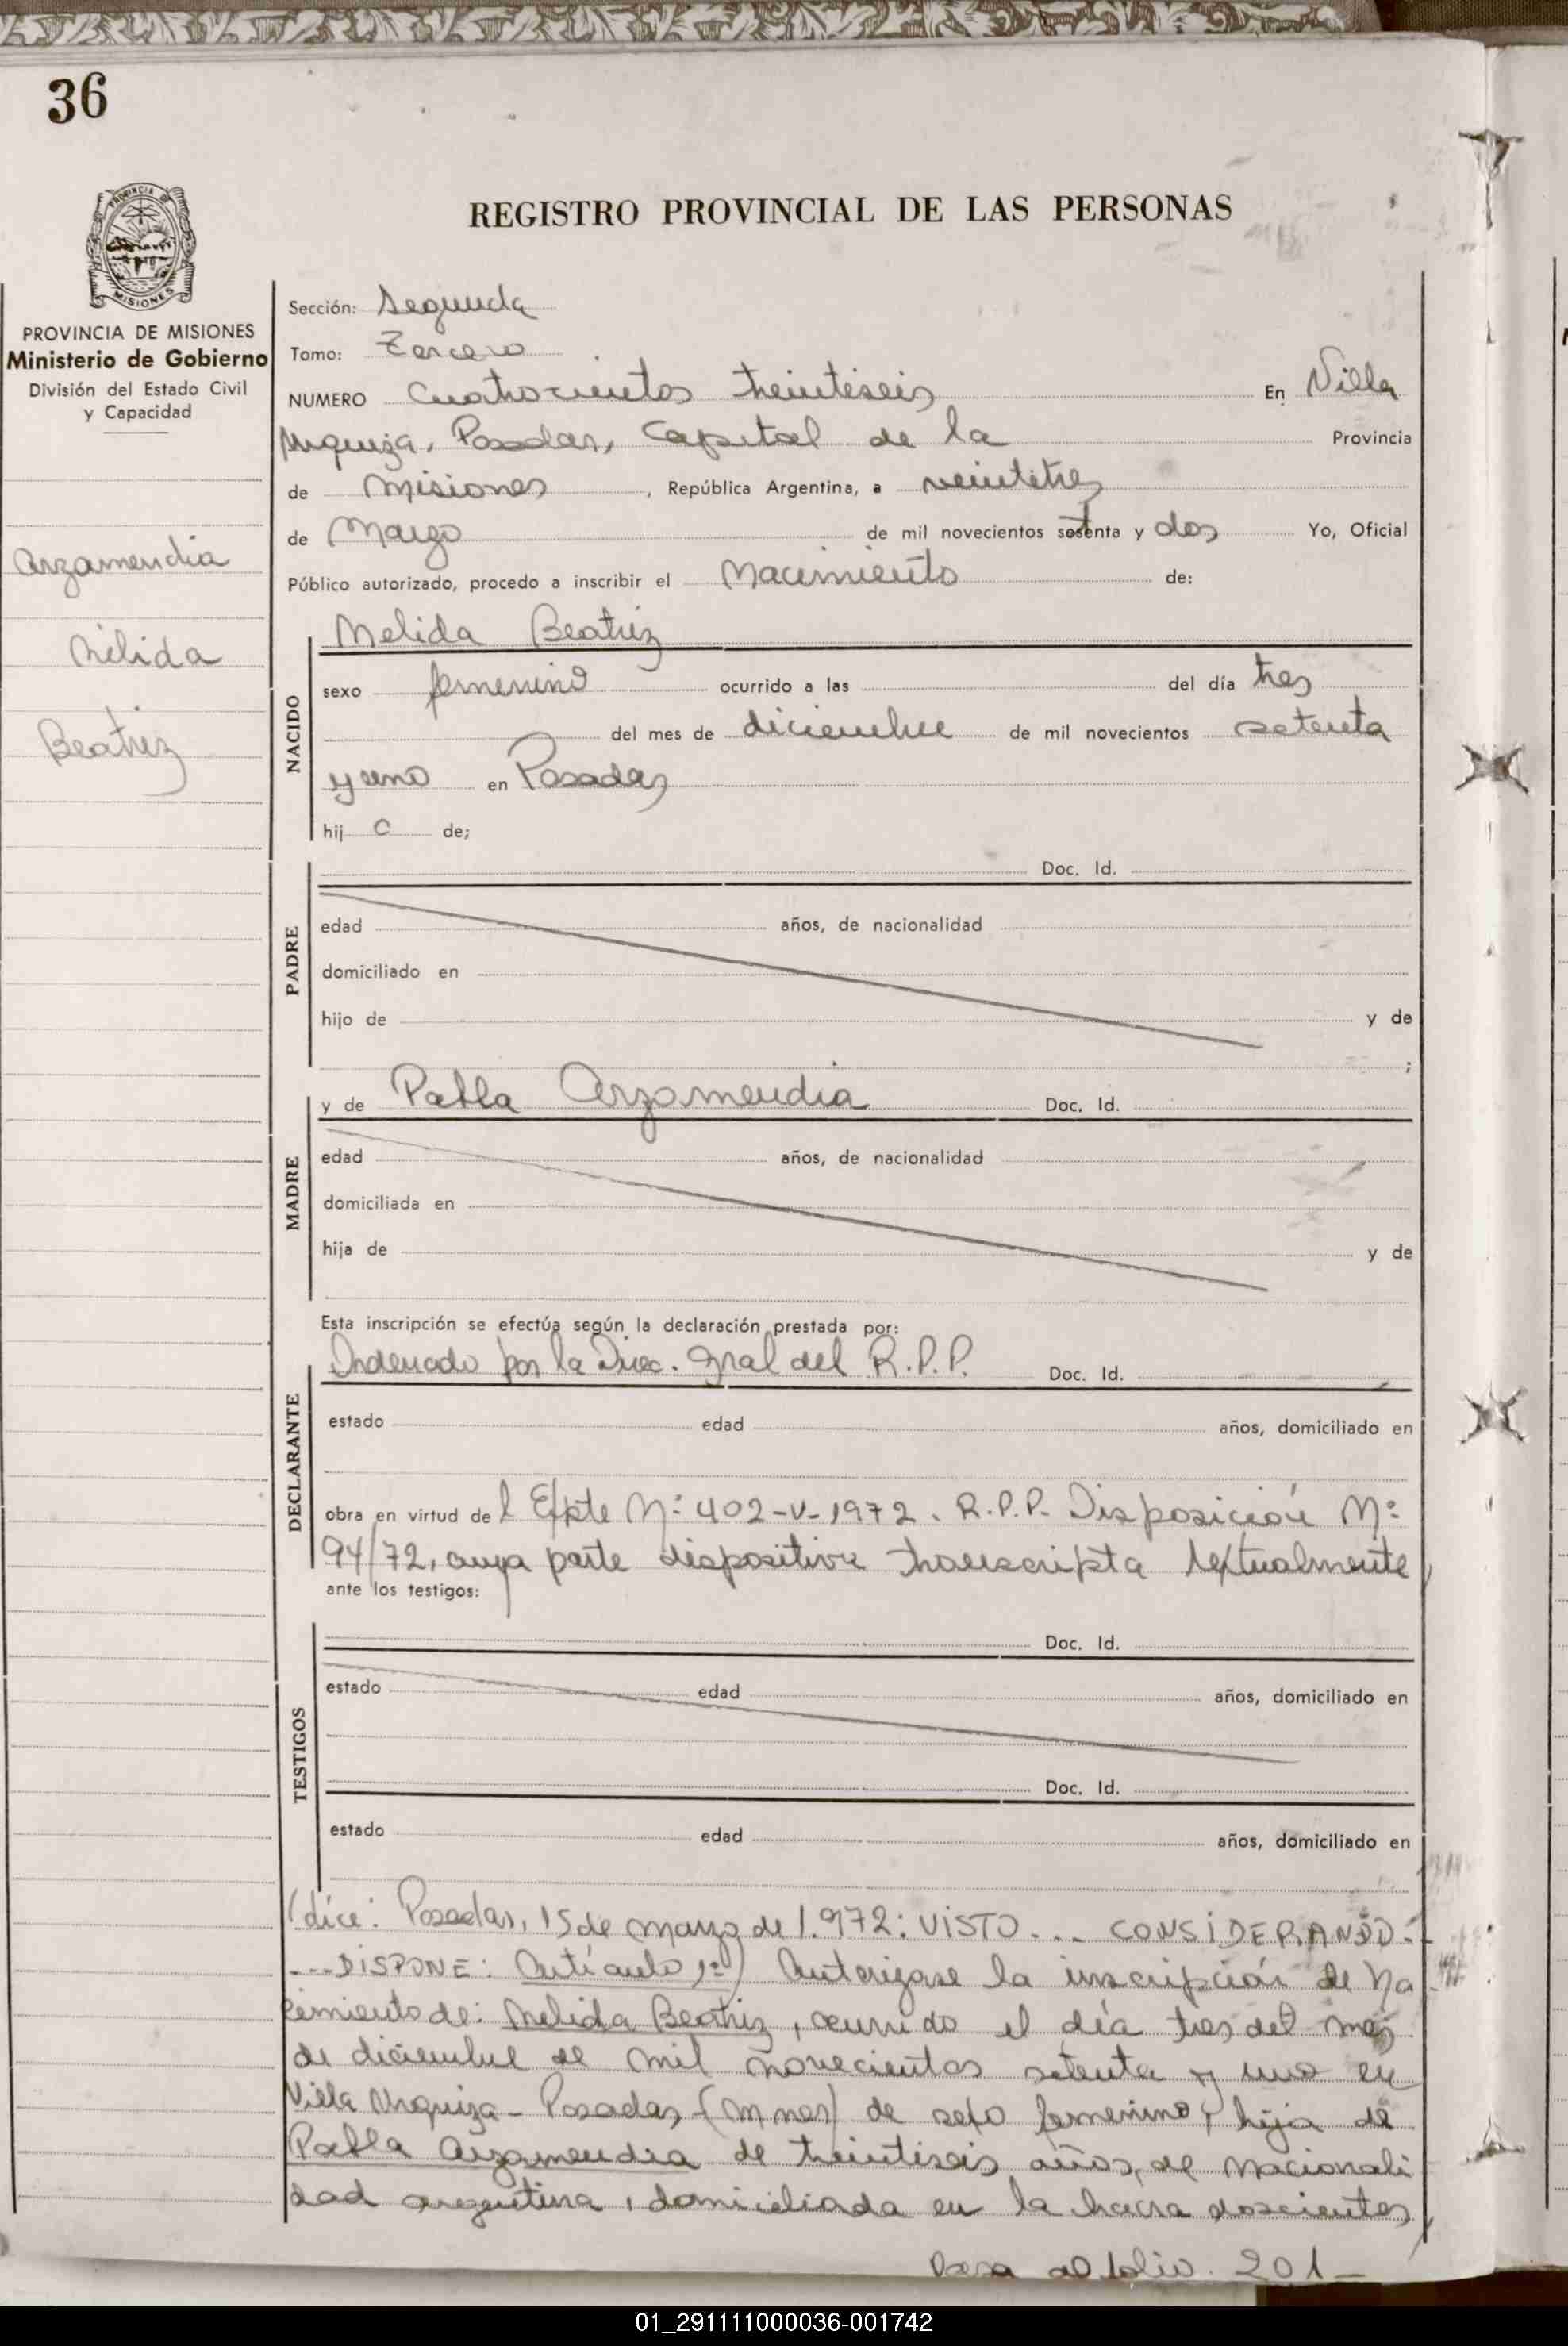 36
PROVINCIA
MISIONES
PROVINCIA DE MISIONES
Ministerio de Gobierno
División del Estado Civil
y Capacidad
Arzamendia
Nélida
Beatriz
REGISTRO PROVINCIAL DE LAS PERSONAS
Sección: Segunda
Tomo: Tercero
NUMERO Cuatrocientos treintiseis En Villa
Urquiza, Posadas, Capital de la Provincia
de Misiones, República Argentina, a veintitres
de Marzo de mil novecientos setenta y dos Yo, Oficial
Público autorizado, procedo a inscribir el Nacimiento de:
NACIDO
Nelida Beatriz
sexo femenino ocurrido a las del día tres
del mes de diciembre de mil novecientos setenta
y uno en Posadas
hij a de;
PADRE
Doc. Id.
edad años, de nacionalidad
domiciliado en
hijo de y de
;
MADRE
y de Pabla Arzamendia Doc. Id.
edad años, de nacionalidad
domiciliada en
hija de y de
Esta inscripción se efectúa según la declaración prestada por:
DECLARANTE
Ordenado por la Direc. Gral del R.P.P. Doc. Id.
estado edad años, domiciliado en
obra en virtud de l Expte Nº 402-V-1972. R.P.P. Disposición Nº
94/72, cuya parte dispositiva transcripta textualmente
ante los testigos:
TESTIGOS
Doc. Id.
estado edad años, domiciliado en
Doc. Id.
estado edad años, domiciliado en
(dice: Posadas, 15 de marzo de 1.972: VISTO... CONSIDERANDO:
...DISPONE: Artículo 1º) Autorizase la inscripción de Na
cimiento de: Nelida Beatriz, ocurrido el día tres del mes
de diciembre de mil novecientos setenta y uno en
Villa Urquiza - Posadas - (Mnes) de sexo femenino, hija de
Pabla Arzamendia de treintiseis años, de nacionali
dad argentina, domiciliada en la chacra doscientos
Pasa al folio. 201-
01_291111000036-001742